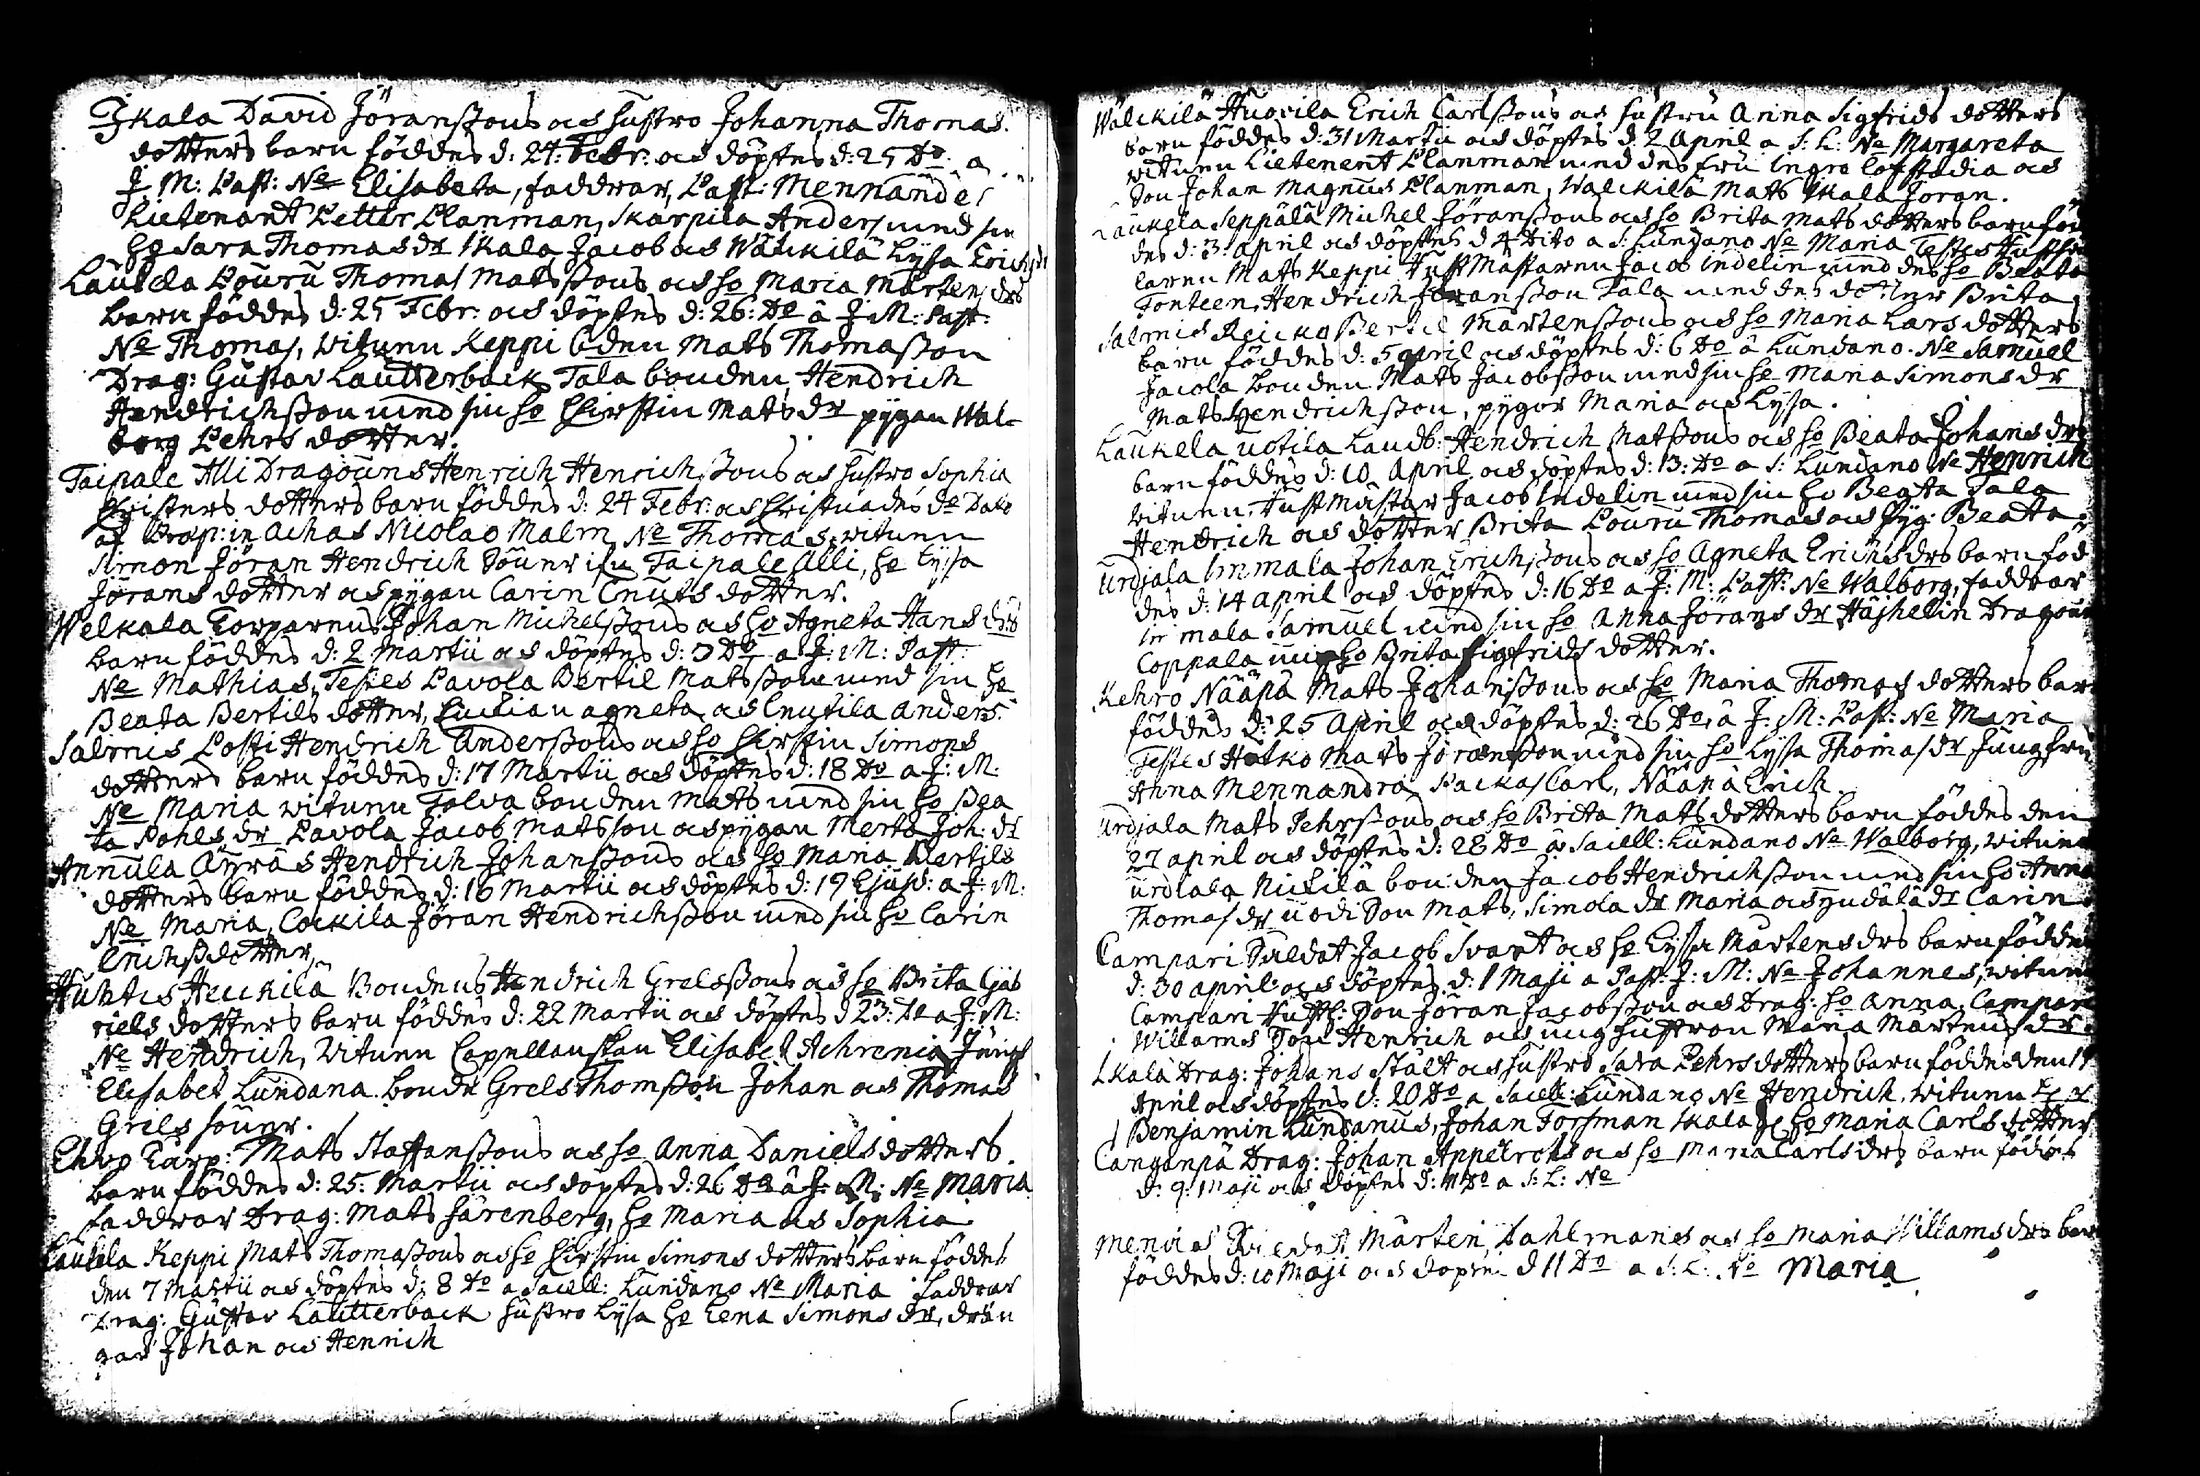 Ikala David Jöranßons och hustro Johanna Thomas
dotters barn föddes d: 24: Febr: och döptes d: 25 Do: a
J. M: Past: Ne Elisabeta, faddrar, Past: Mennander
Lieutenant Petter Planman, Skarpila Anders med sin
Hu Sara Thomas dr Ikala Jacob och Wälikilä Lysa Erichsdr
Laukela Pouru Thomas Matsßons och ho Maria Mårtens drs
barn föddes d: 25 Febr: och döptes d: 26: Do â J: M: Past:
Ne Thomas, witnen Keppi bden Mats Thomaßon
Drag: Gustav Lautterback Tala bonden Hendrich
Hendrichßon med sin ho Chirstin Mats dr pygan Wal-
borg Pehrs dotter.
Taipale Alli Dragouns Henrich Henrichßons och hustro Sophia
Christers dotters barn föddes d: 24 Febr: och Christnades do Dato
af Præp: in Achas Nicolao Malm Ne Thomas, witnen
Simon Jöran Hendrich Söner ifrn Taipale Alli, ho Lysa
Jörans dotter och pygan Carin Cnuts dotter.
Welkala Torparens Johan Michelßons och ho Agneta Hans drs
barn föddes d: 2 Martii och döptes d: 3 Do a J: M: Past:
Ne Mathias, Testes Pavola Bertil Matsßon med sin ho
Beata Bertils dotter, Agneta och Cnutila Anders.
Salmis Posti Hendrich Anderßons och ho Chirstin Simons
dotters barn föddes d: 17 Martii och döptes d: 18 Do a J: M:
Ne Maria witnen Tolva bonden Mats med sin ho Bea
ta Pohls dr Pavola Jacob Matsson och pygan Merta Joh: dr
Annula Äyräs Hendrich Johanßons och ho Maria Bertils
dotters barn föddes d: 16 Martii och döptes d: 19 Ejusd: a J: M:
Ne Maria, Cockila Jöran Hendrichßon med sin ho Carin
Erichßdotter,
Huhtis Heickilä Bondens Hendrich Grelsßons och ho Brita Gab
riels dotters barn föddes d: 22 Martii och döptes d 23: Do a J: M:
Ne Hendrich, Witnen Capellanskan Elisabet Achrenia Jungf
Elisabet Lundana. bonde Grels Thomßon Johan och Thomas
Grels söner.
Ehro Torp: Mats Staffanßons och ho Anna Daniels dotters
barn föddes d: 25: Martii och döptes d: 26 Do â J: M: Ne Maria
faddrar Drag: Mats Särenberg, ho Maria och Sophia
Laukela Keppi Mats Thomaßons och ho Chirstin Simons dotters barn föddes
den 7 Martii och döptes d: 8 Do a Sacell: Lundano Ne Maria faddrar
Drag: Gustav Lautterback hustro Lysa ho Lena Simons dr, drän
gar Johan och Henrich
Wälckilä Huovila Erich Carlßons och hustru Anna Sigfrids dotters
barn föddes d: 31 Martii och döptes d: 2 April a S: L: Ne Margareta
witnen Lieutenent Planman med des fru Ingre Lofstedia och
Son Johan Magnus Planman, Walckilä Mats Ikala Jöran.
Laukela Seppälä Michel Jöranßons och ho Brita Mats dotters barn föd
des d: 3: April och döptes d 4 Dito a S: Lundano Ne Maria Testes
laren Mats Keppi Tust Mästaren Jacob Indelin med des ho Beata
Fonteen, Hendrich Jöranßon Tala med des dotter Brita
Salmis Reicko Bertil Mårtenßons och ho Maria Lars dotters
barn föddes d: 5 April och döptes d: 6 Do â Lundano. Ne Samuel
Jacola bonden Mats Jacobßon med sin ho Maria Simons dr
Mats Hendrichßon, pygor Maria och Lysa.
Laukela Uotila Landb: Hendrich Matßons och ho Beata Johans drs
barn föddes d: 10 April och döptes d: 13: Do a S: Lundano Ne Henrich
witnen, Tust Mästar Jacob Indelin med sin ho Beata Tala
Hendrich och dotter Brita Pouru Thomas och Pyg: Beata.
Urdjala Immala Johan Erichßons och ho Agneta Erichs drs barn föd
des d: 14 April och döptes d: 16 Do a J: M: Past: Ne Walborg, faddrar
Immala Samuel med sin ho Anna Jörans dr Häihelin Dragoun
Coppala ung ho Brita Sigfrids dotter.
Kehro Nääpä Mats Johansßons och ho Maria Thomas dotters barn
föddes d: 25 April och döptes d: 26 Do, â J: M: Past: Ne Maria
Testes Hatko Mats Jöranßon med sin ho Lysa Thomas dr Jungfru
Anna Mennandra, Packas Carl, Nääpä Erich.
Urdjala Mats Pehrßons och ho Brita Mats dotters barn föddes den
27 April och döptes d: 28 Do â Sacell: Lundano Ne Walborg, witnen
Urdiala Nickilä bonden Jacob Hendrichßon med sin ho Anna
Thomas dr Uodi Son Mats, Simola dr Maria och dr Carin
Campari Soldat Jacob Svart och ho Lysa Mårtens drs barn föddes
d: 30 April och döptes d: 1 Maji a Past: J: M: Ne Johannes, witnen
Campari Son Jöran Jacobßon och Drag: ho Anna, Campari
Willams Son Henrich och ung hustron Maria Mårtens dr.
Ikala Drag: Johans Stält och hustro Sara Pehrs dotters barn föddes den 19
April och döptes d: 20 Do a Sacell: Lundano Ne Hendrich. witnen
Benjamin Lundanus, Johan Forsman Ikala ho Maria Carls dotter
Canganpä Drag: Johan Appelroths och ho Maria Carls drs barn föddes
d: 9: Maji och döptes d: 11 Do a S: L: Ne
Menias Mårten Dahlmanes och ho Maria Willams drs barn
föddes d: 10 Maji och döptes d 11 Do a S: L: Ne Maria